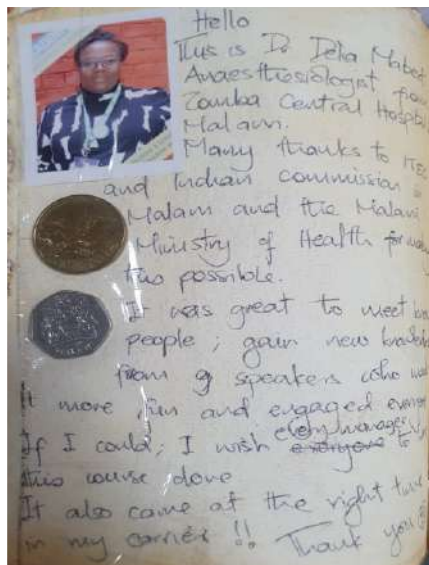 Hello
This is Dr Delia
Anaesthesiologist from
Zomba Central Hospital
Malawi.
Many thanks to ITEC
and Indian commission in
Malawi and the Malawi
Ministry of Health for making
this possible.
It was great to meet
people; gain new knowledge
from 9 speakers who
it more fun and engaged
every manager
If I could; I wish everyone to
this course done
It also came at the right time
in my carrier !! Thank you